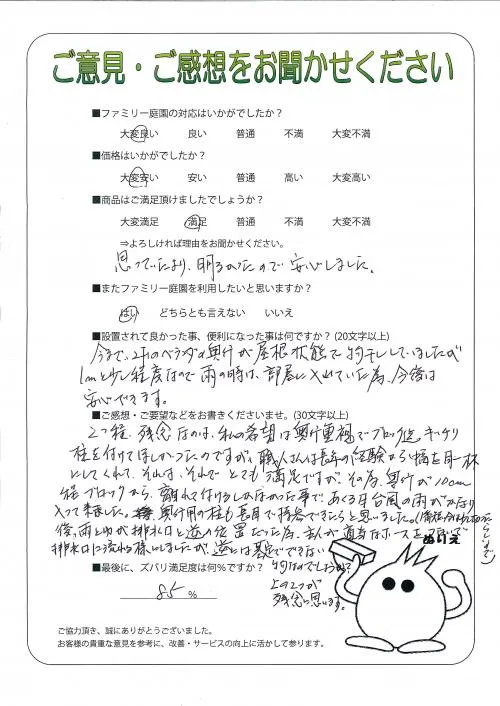 ご意見・ご感想をお聞かせください
■ファミリー庭園の対応はいかがでしたか？
大変良い 良い 普通 不満 大変不満
■価格はいかがでしたか？
大変安い 安い 普通 高い 大変高い
■商品はご満足頂けましたでしょうか？
大変満足 満足 普通 不満 大変不満
⇒よろしければ理由をお聞かせください。
思っていたより、明るかったので安心しました。
■またファミリー庭園を利用したいと思いますか？
はい どちらとも言えない いいえ
■設置されて良かった事、便利になった事は何ですか？(20文字以上)
今まで、2Fのベランダの奥行が屋根状態で物干ししていましたが
1mと少し程度なので雨の時は、部屋に入れていた為、今後は
安心できます。
■ご感想・ご要望などをお書きくださいませ。(30文字以上)
2つ程、残念なのは、私の希望は奥行重視でブロック迄、キッチリ
柱を付けてほしかったのですが、職人さんは長年の経験から幅を目一杯
にしてくれて、それは、それでとても満足ですが、その為、奥行が10cm
程ブロックから、離れて付けるしかなかった事で、あくる日台風の雨がかなり
入って来ました。奥行用の柱も長目で持参できたらと思いました。
後、雨とゆが排水口と逆の位置だった為、主人が適当なホースを
排水口に流れる様にしましたが、逆には設定できない
物なのでしょうか？
上の2つが
残念に思います。
■最後に、ズバリ満足度は何％ですか？
85 %
ぬけぇ
ご協力頂き、誠にありがとうございました。
お客様の貴重な意見を参考に、改善・サービスの向上に活かして参ります。